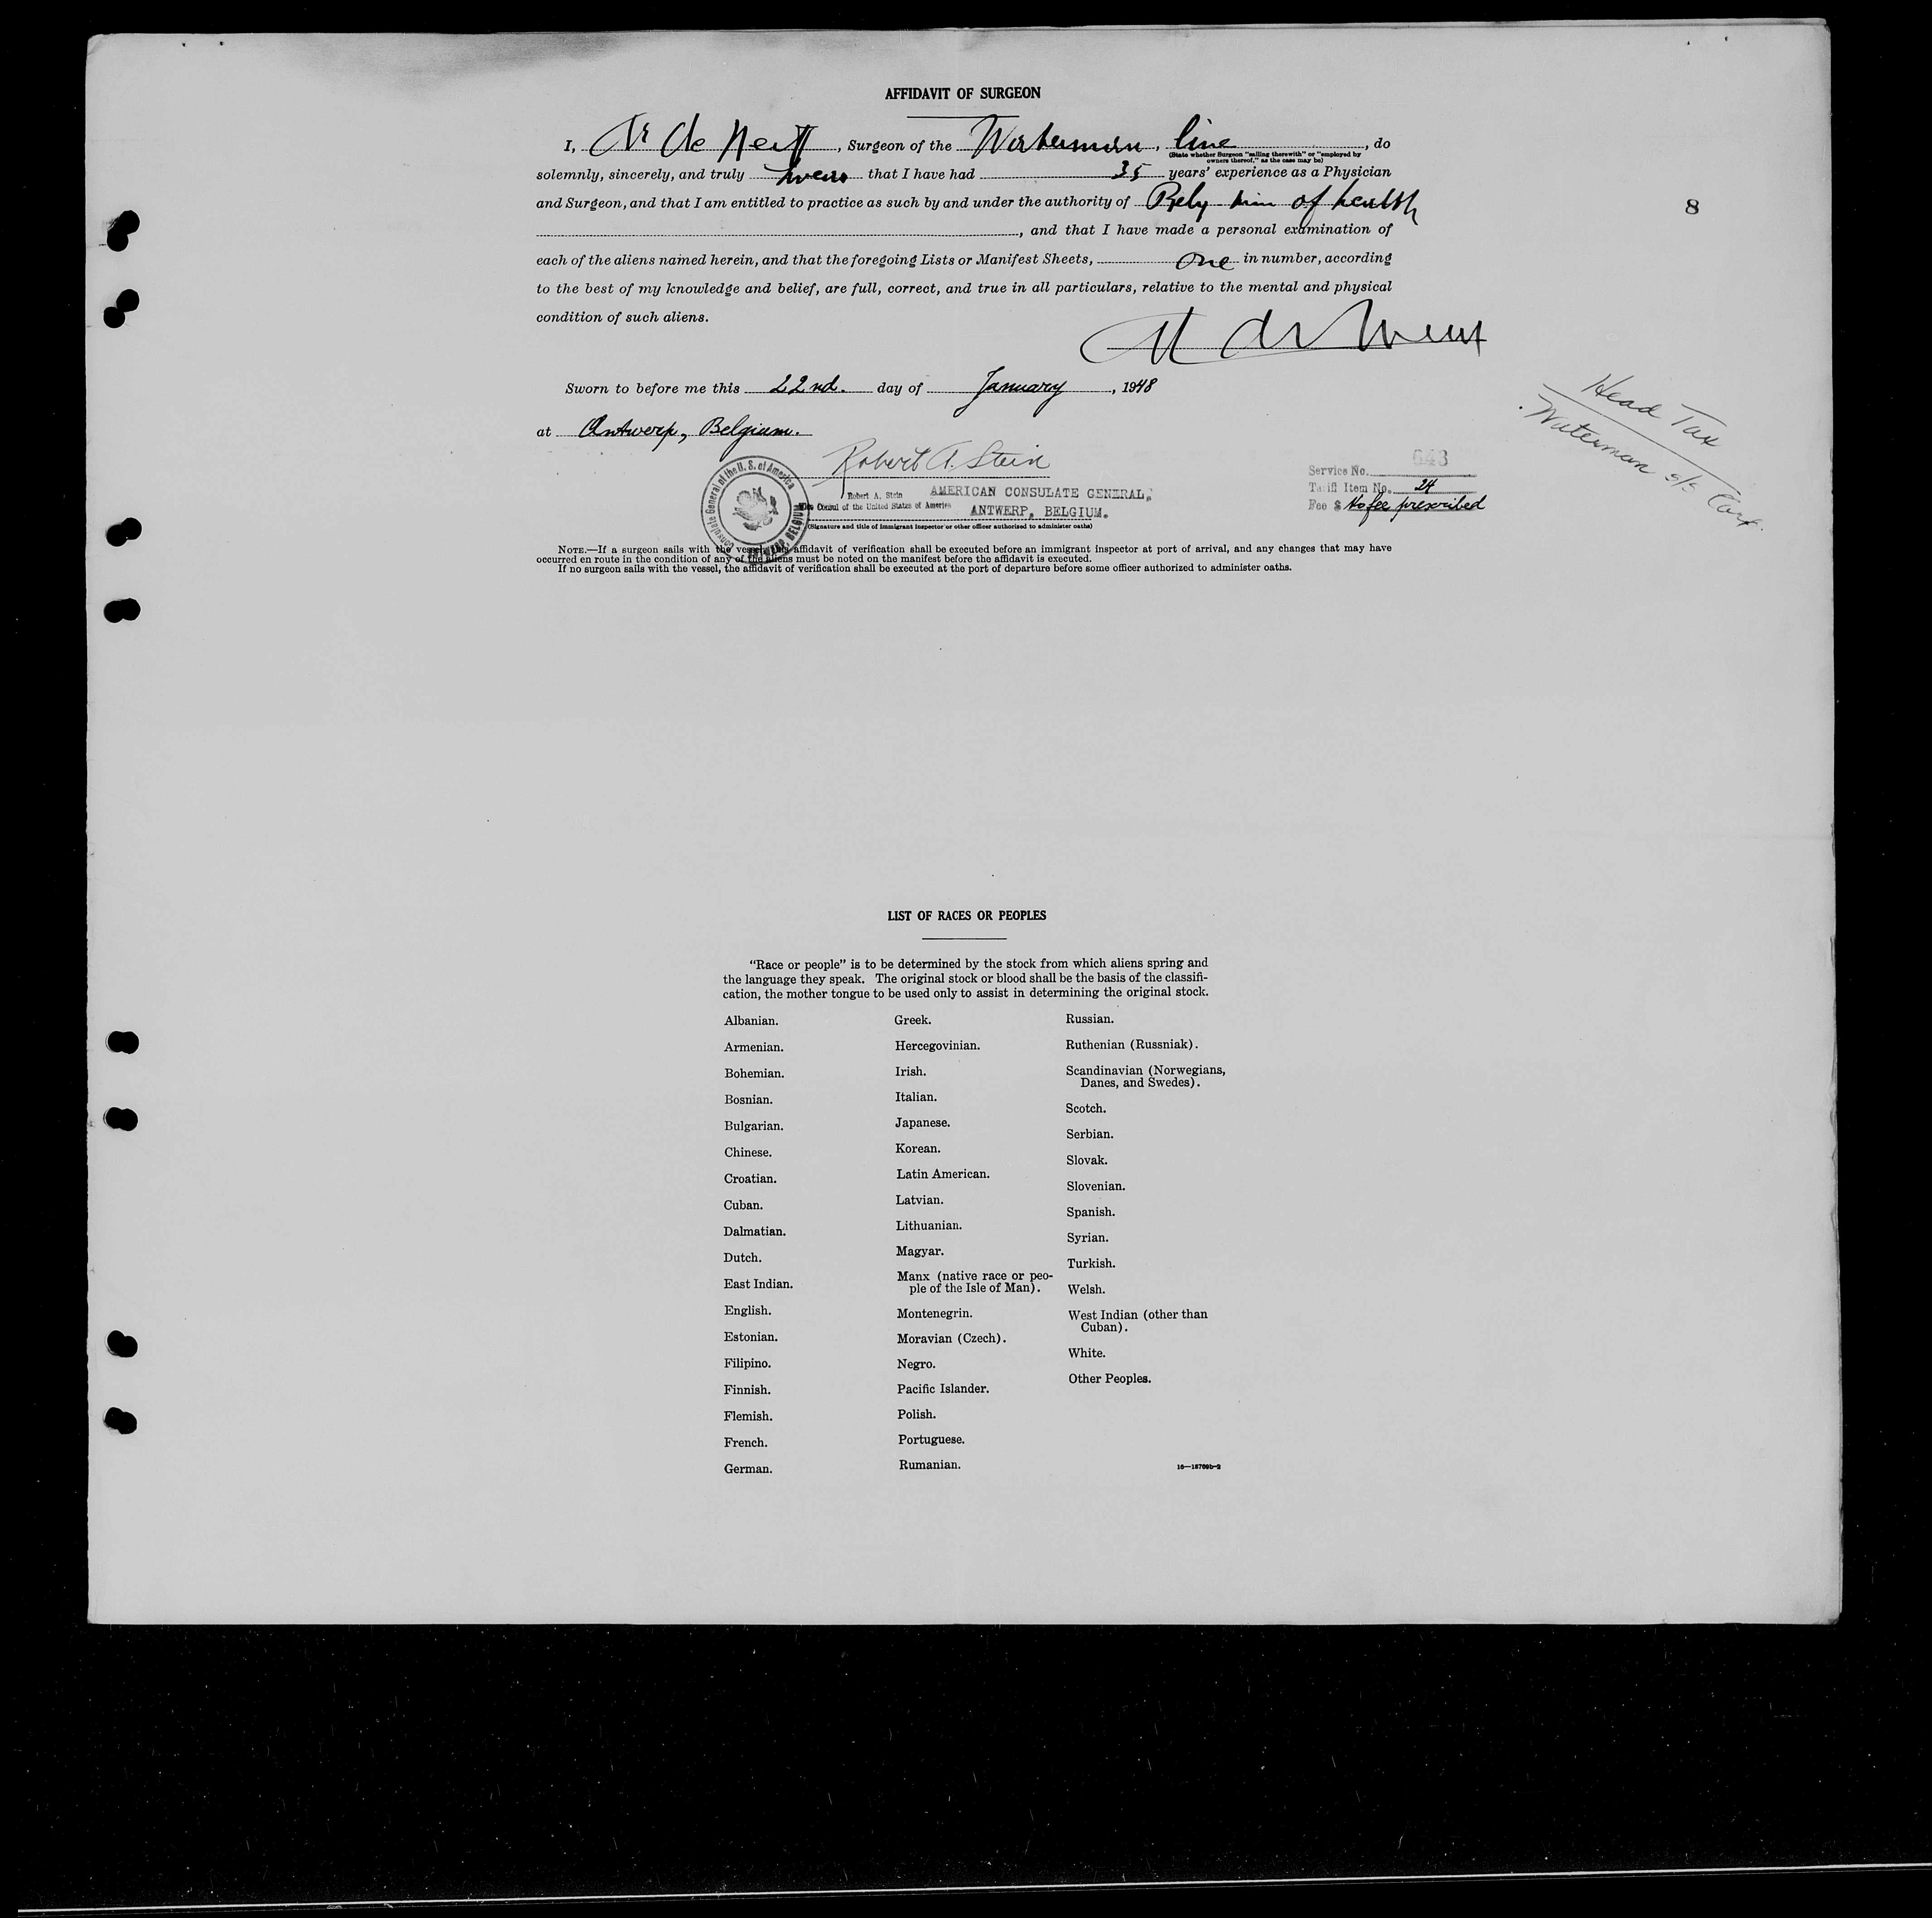 AFFIDAVIT OF SURGEON
I, Dr de , Surgeon of the Waterman, line, do
(State whether Surgeon "sailing therewith" or "employed by
owners thereof," as the case may be)
solemnly, sincerely, and truly swear that I have had 35 years' experience as a Physician
and Surgeon, and that I am entitled to practice as such by and under the authority of Belg min of health
, and that I have made a personal examination of
each of the aliens named herein, and that the foregoing Lists or Manifest Sheets, one in number, according
to the best of my knowledge and belief, are full, correct, and true in all particulars, relative to the mental and physical
condition of such aliens.
Sworn to before me this 22nd. day of January, 1948
at Antwerp, Belgium.
Robert A. Stein
Robert A. Stein AMERICAN CONSULATE GENERAL,
Vice Consul of the United States of America ANTWERP, BELGIUM.
(Signature and title of immigrant inspector or other officer authorized to administer oaths)
Consulate General of the U. S. of America
ANTWERP, BELGIUM
Service No. 643
Tariff Item No. 24
Fee $ No fee prescribed
8
Head Tax
Waterman s/s Corp.
NOTE.—If a surgeon sails with the vessel, this affidavit of verification shall be executed before an immigrant inspector at port of arrival, and any changes that may have
occurred en route in the condition of any of the aliens must be noted on the manifest before the affidavit is executed.
If no surgeon sails with the vessel, the affidavit of verification shall be executed at the port of departure before some officer authorized to administer oaths.
LIST OF RACES OR PEOPLES
"Race or people" is to be determined by the stock from which aliens spring and
the language they speak. The original stock or blood shall be the basis of the classifi-
cation, the mother tongue to be used only to assist in determining the original stock.
Albanian.
Armenian.
Bohemian.
Bosnian.
Bulgarian.
Chinese.
Croatian.
Cuban.
Dalmatian.
Dutch.
East Indian.
English.
Estonian.
Filipino.
Finnish.
Flemish.
French.
German.
Greek.
Hercegovinian.
Irish.
Italian.
Japanese.
Korean.
Latin American.
Latvian.
Lithuanian.
Magyar.
Manx (native race or peo-
ple of the Isle of Man).
Montenegrin.
Moravian (Czech).
Negro.
Pacific Islander.
Polish.
Portuguese.
Rumanian.
Russian.
Ruthenian (Russniak).
Scandinavian (Norwegians,
Danes, and Swedes).
Scotch.
Serbian.
Slovak.
Slovenian.
Spanish.
Syrian.
Turkish.
Welsh.
West Indian (other than
Cuban).
White.
Other Peoples.
16—18709b-2